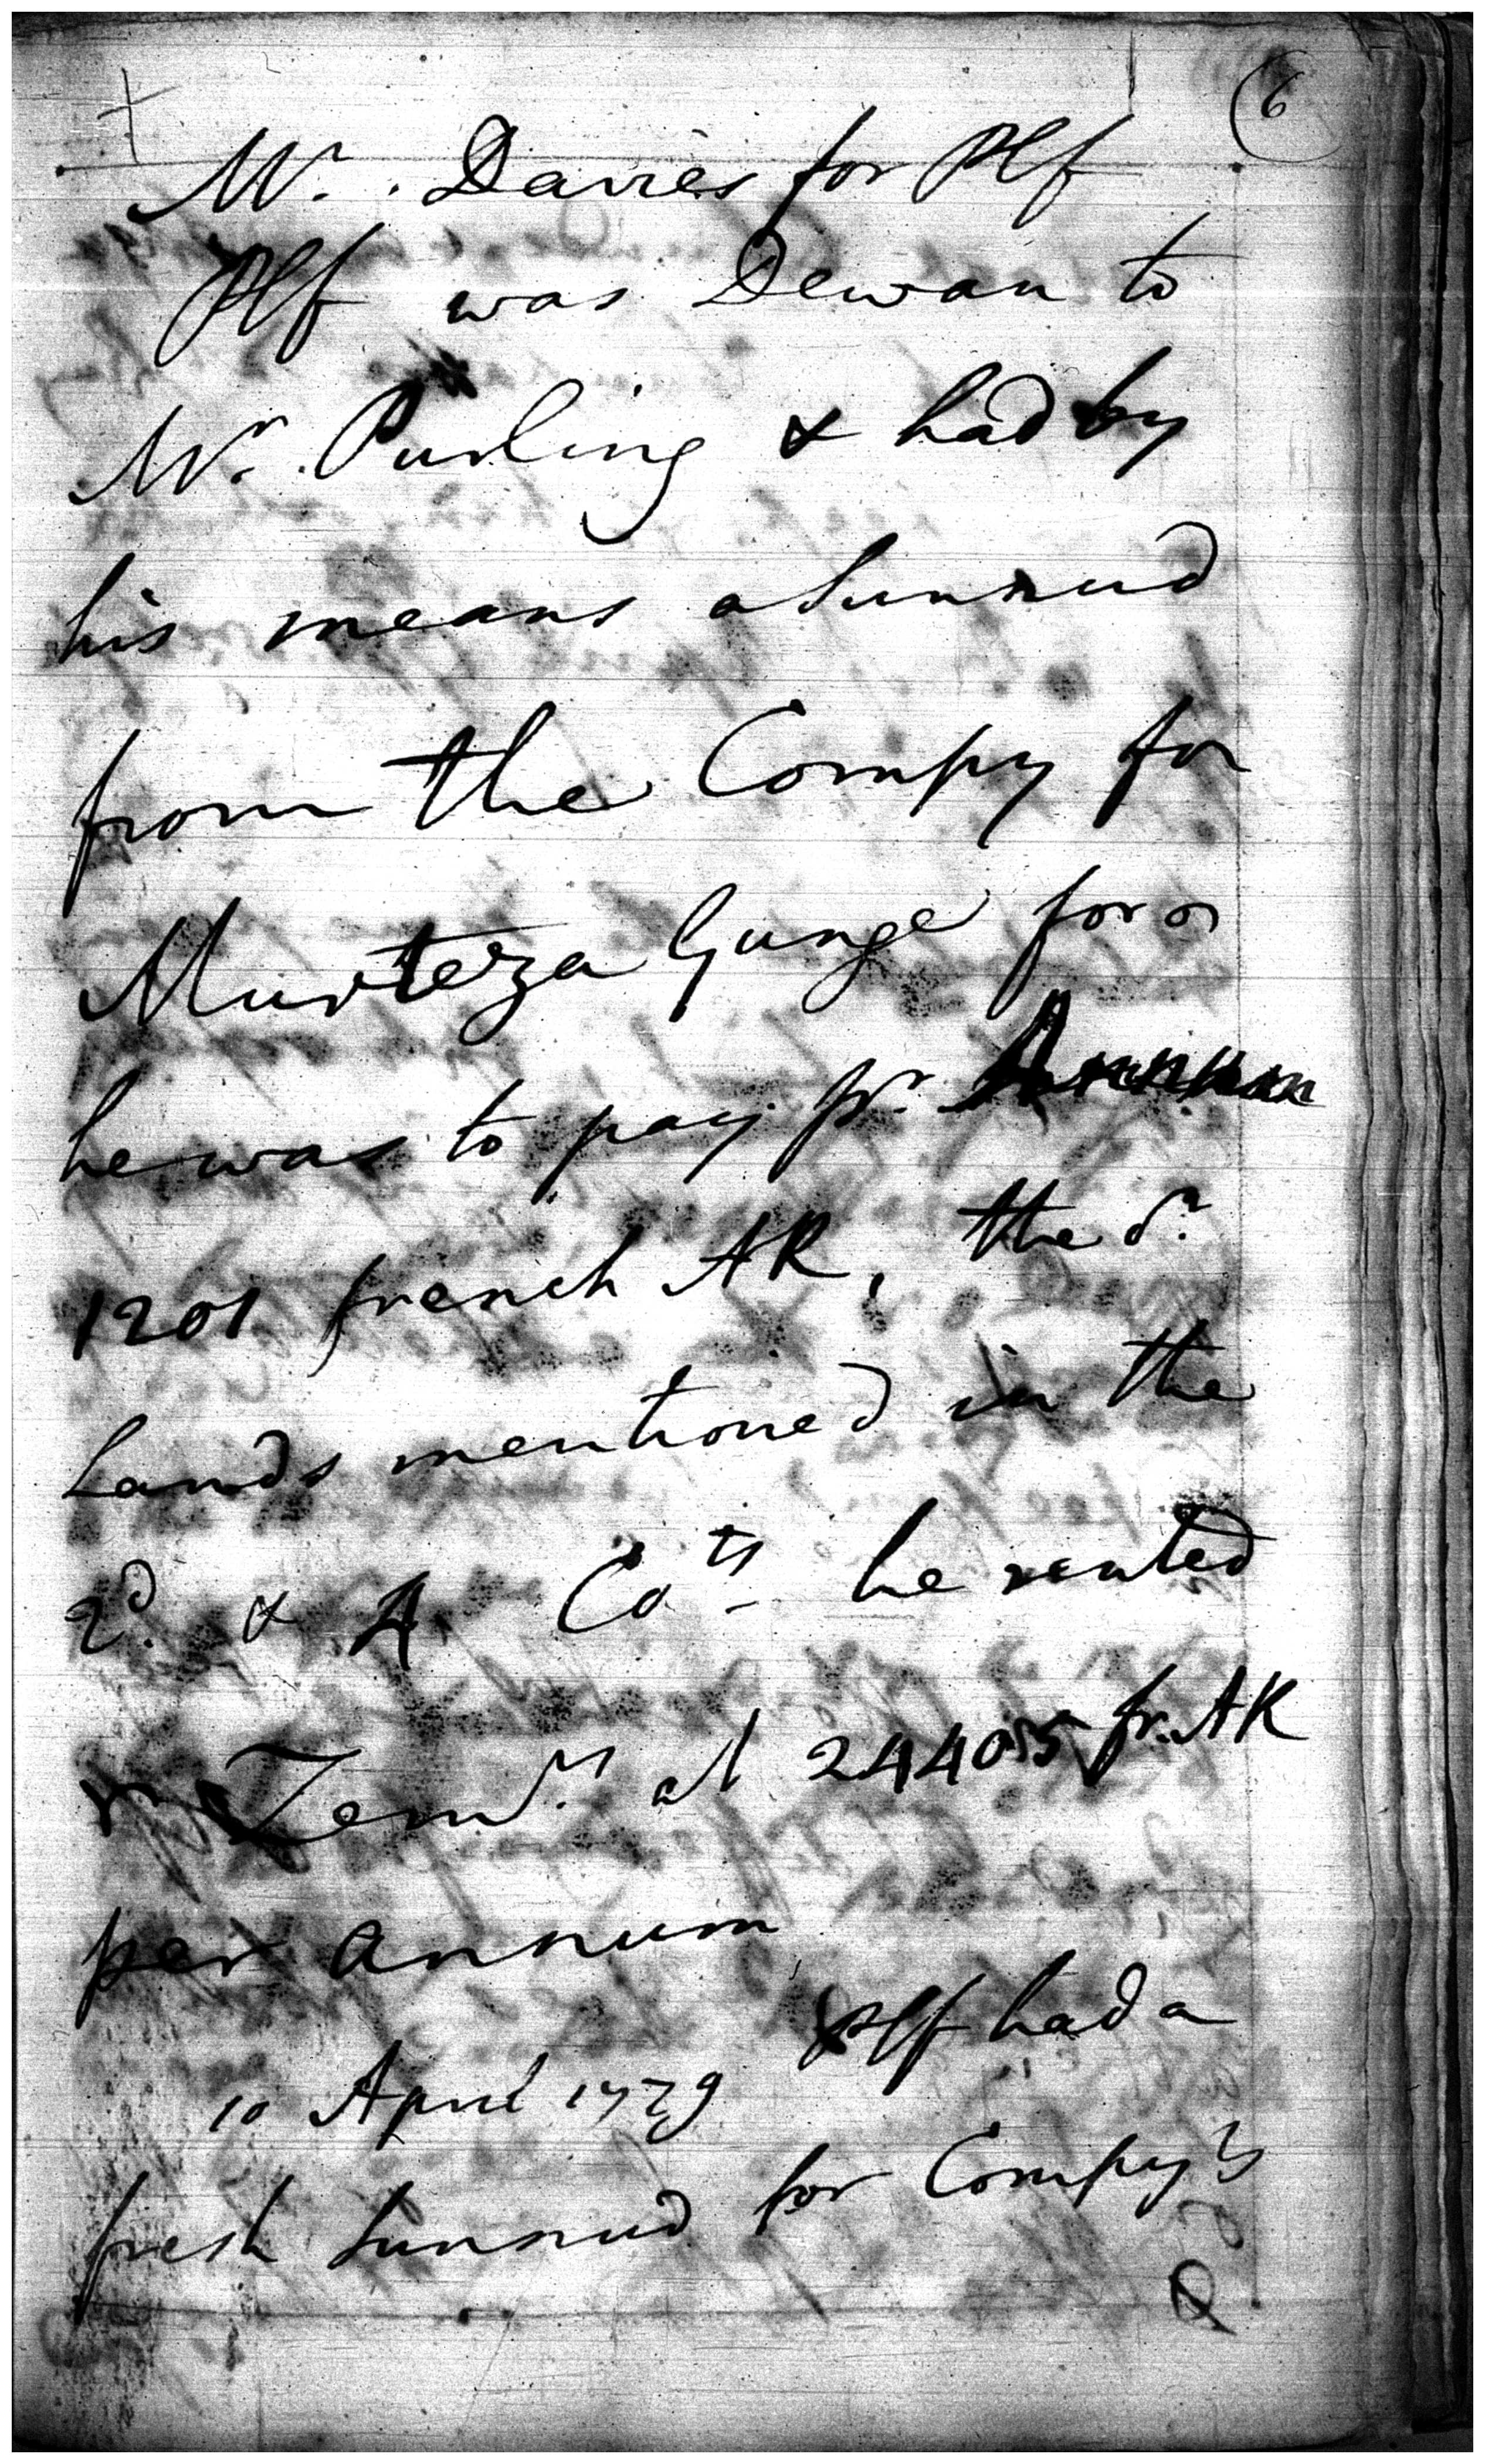 6
Mr. Davies for Plf
Plf was Dewan to
Mr. Purling & had by
his means a Sunnud
from the Compy for
Murteza Gunge for
he was to pay pr. Annum
1201 french AR, the
Lands mentioned in the
2d. & 4 Cots he rented
Zemrs at 244055 fr. AR
per annum
Plf had a
10 April 1779
fresh Sunnud for Compy's